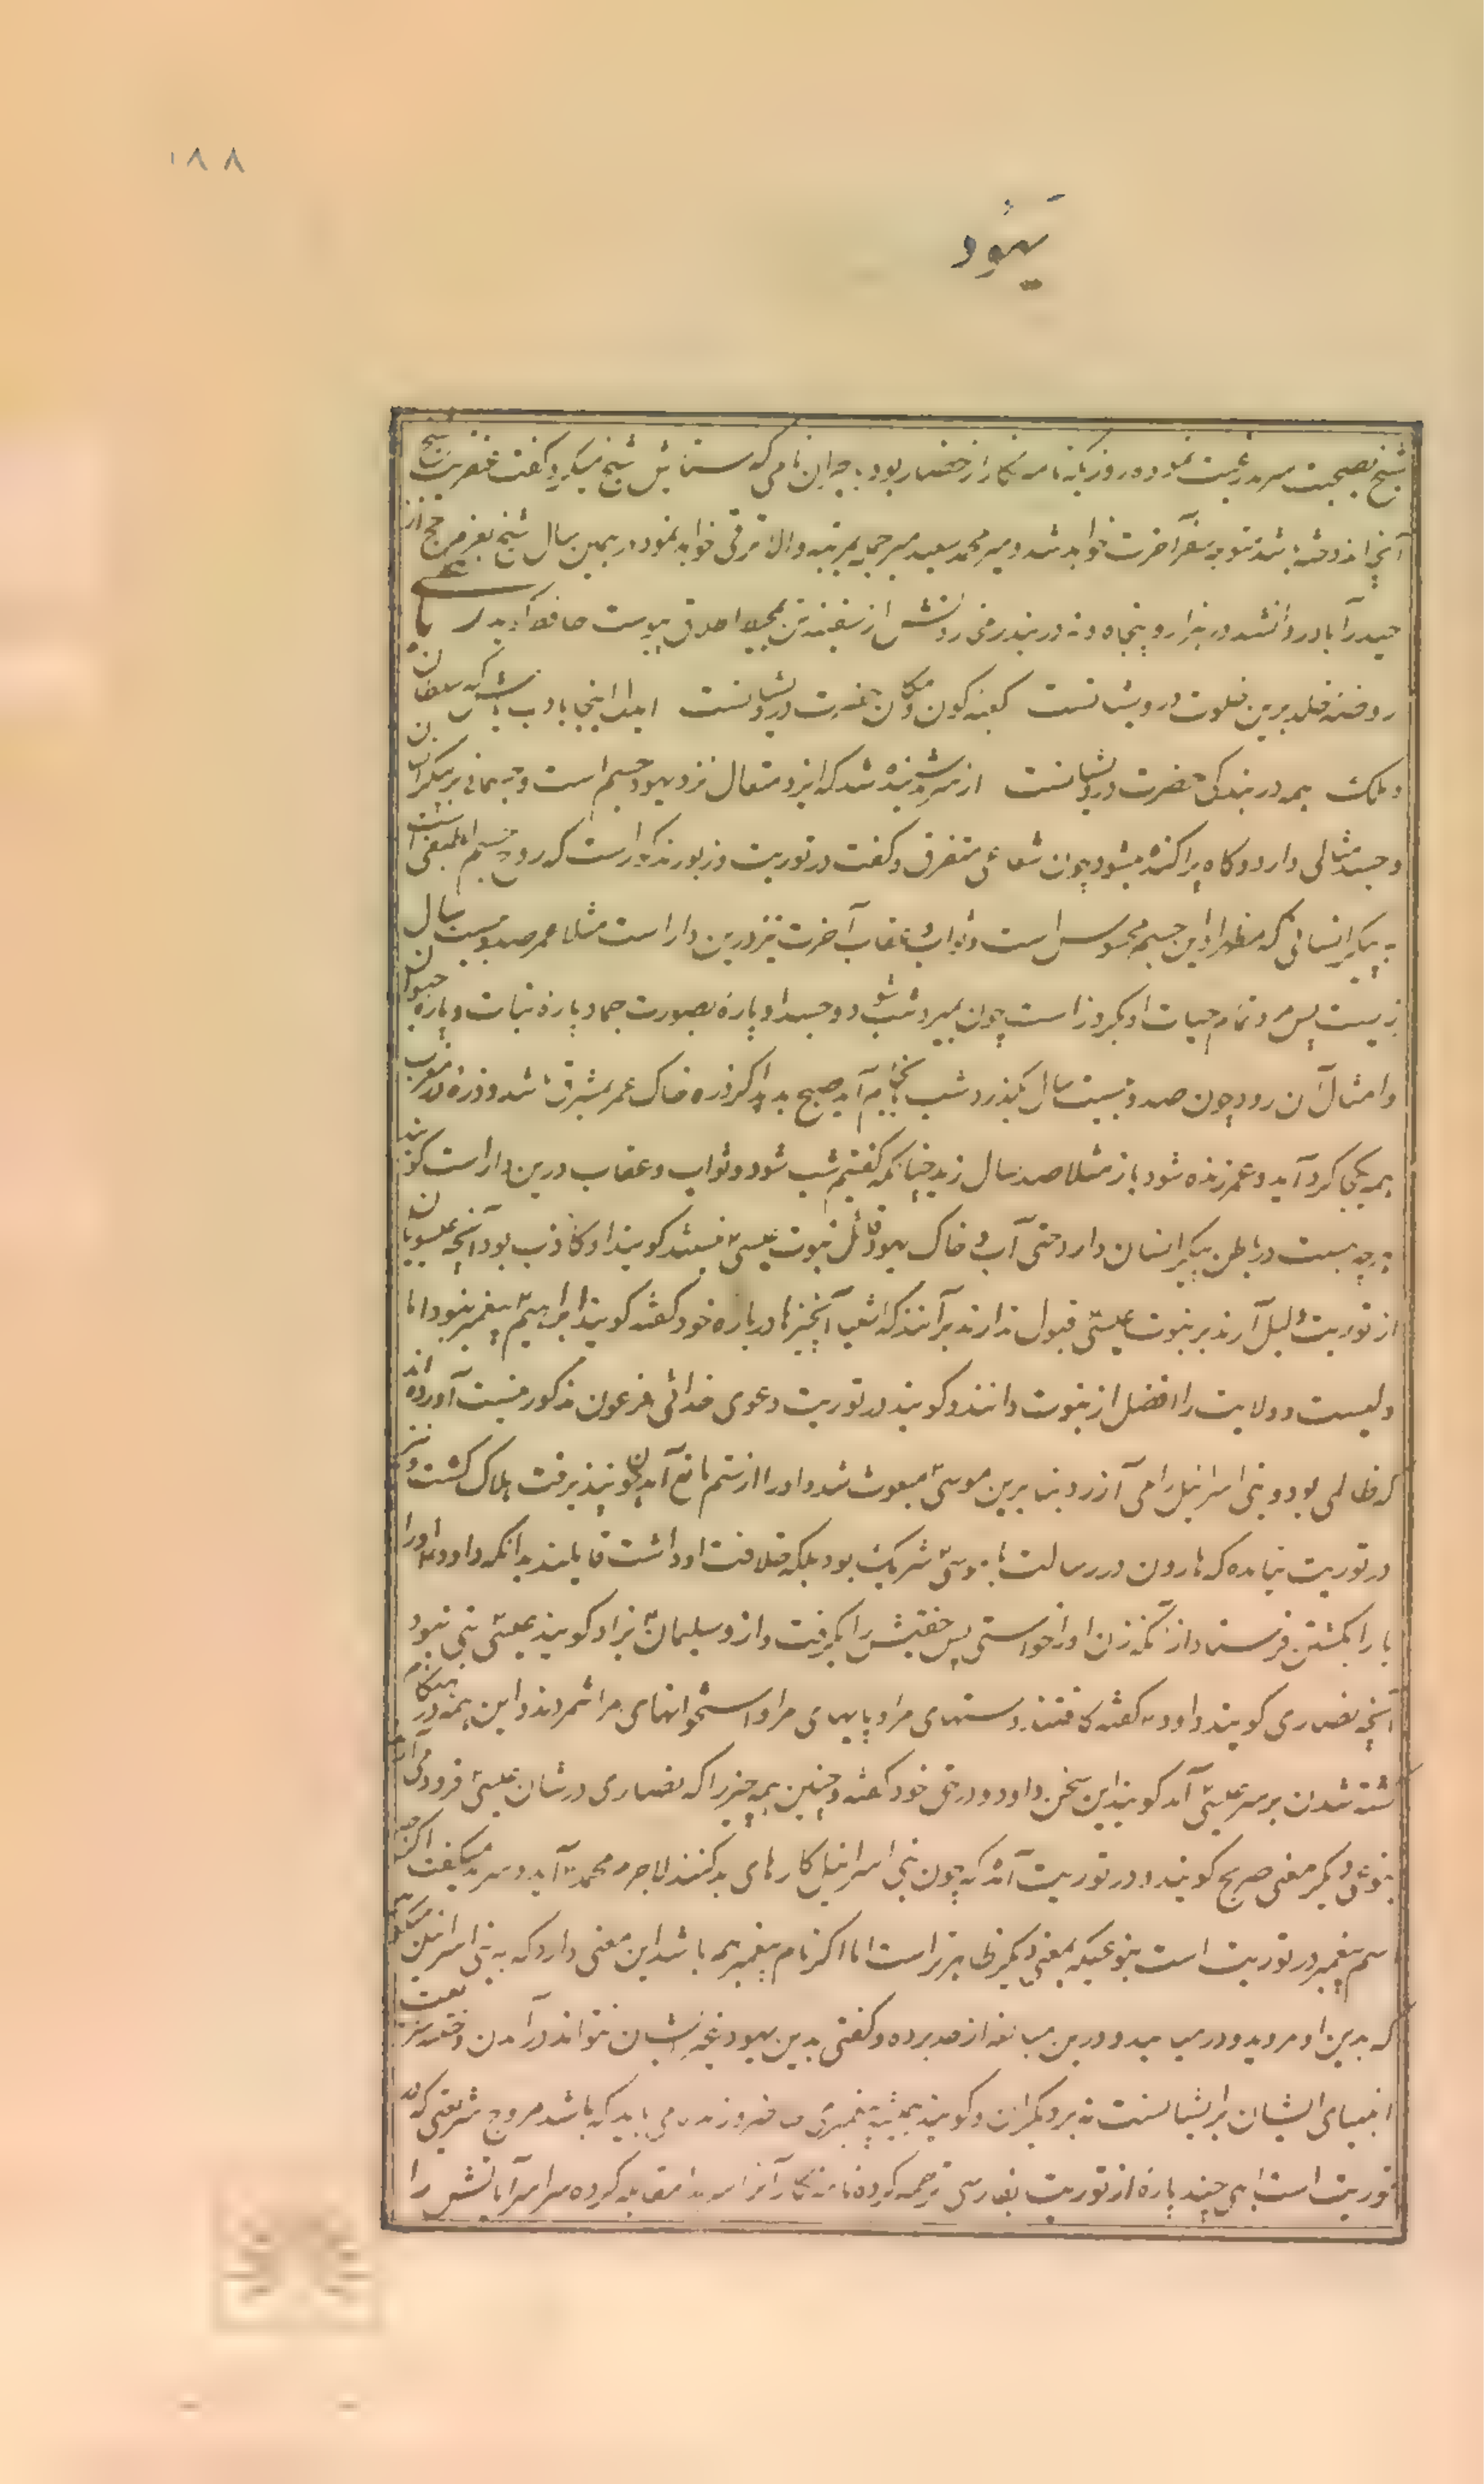 ۱۸۸
یهود
شیخ بصحبت سرمد رغبت نموده روزیکه نامه نگار از حضار بود بجوابن نامی که ستایش شیخ میکرد گفت عنقریب شیخ
آنچه اندوخته باشد متوجه سفر آخرت خواهد شد و میر محمد سعید میر جمله بمرتبه والا ترقی خواهد نمود در همین سال شیخ بعزم حج از
حیدرآباد روانه شد در هزار و پنجاه و نه در بندر از سفینه تن بمحیط اطلاق پیوست حافظ
روضه خلد برین خلوت درویشانست کعبه کون و مکان حضرت درویشانست ایدل اینجا بادب باش که سلطان
و ملک همه در بندگی حضرت درویشانست از سرمد شنیده شد که ایزد متعال نزد یهود جسم است و جسمانی بر پیکر انسان
و جسد مثالی دارد و گاه پراکنده میشود چون شعاعی متفرق و گفت در توریت و زبور مذکور است که روح جسم لطیفی است
به پیکر انسانی که مظهر او این جسم محسوس است و ثواب و عقاب آخرت نیز درین دار است مثلا عمر صد و بیست سال
زیست پس مرد و تمام حیات او یکروز است چون بمیرد شب شود و جسد او پاره بصورت جماد و پاره نبات و پاره حیوان
و امثال آن رود چون صد و بیست سال بگذرد شب بانجام آید صبح بدید اگر ذره خاک عمر بمشرق باشد و ذره در مغرب
همه یکجا گرد آید و عمر زنده شود باز مثلا صد سال زید چنانکه گفتیم شب شود و ثواب و عقاب درین دار است گویند
هرچه هست در باطن پیکر انسان دارد حتی آب و خاک یهود قائل نبوت عیسی نیستند گویند او کاذب بود آنچه عیسویان
از توریت دلیل آرند بر نبوت عیسی قبول ندارند بر آنند که اشعیا آنچیزها درباره خود گفته گویند ابراهیم پیغمبر نبود اما
ولیست و ولایت را افضل از نبوت دانند و گویند در توریت دعوی خدائی فرعون مذکور نیست آورده اند
که ظالمی بود و بنی اسرائیل را می آزرد بنابرین موسی مبعوث شد و او را از ستم مانع آمد چون پند نپذیرفت هلاک گشت و نیز
در توریت نیامده که هارون در رسالت با موسی شریک بود بلکه خلافت او داشت قایلند بدانکه داود اوریا
را بکشتن فرستاد از آنکه زن او را خواستی پس جفتش را بگرفت و ازو سلیمان بزاد گویند عیسی نبی نبود
آنچه نصاری گویند داود گفته سفتند دستهای مرا و پایهای مرا و استخوانهای مرا شمردند و این همه در هنگام
کشته شدن بر سر عیسی آمد گویند این سخن داود در حق خود گفته و چنین همه چیز را که نصاری در شان عیسی فرود می آرند
بنوعی دیگر معنی صریح گویند و در توریت آمده که چون بنی اسرائیل کارهای بد کنند لاجرم محمد آید و سرمد میگفت اگرچه
اسم پیغمبر در توریت است بنوعیکه بمعنی دیگر ظاهرتر است اما اگر نام پیغمبر هم باشد این معنی دارد که به بنی اسرائیل میگوید
که بدین او مروید و درین مبالغه از حد برده و گفتی بدین یهود غیر ایشان نتوانند در آمدن و ختنه
انبیای ایشان بر ایشانست نه بر دیگران و گویند همیشه پیغمبری می باید که باشد مروج شریعتی که
توریت است ابهی چند پاره از توریت بفارسی ترجمه کرده نامه نگار آنرا با سرمد مقابله کرده سراسر آیاتش را